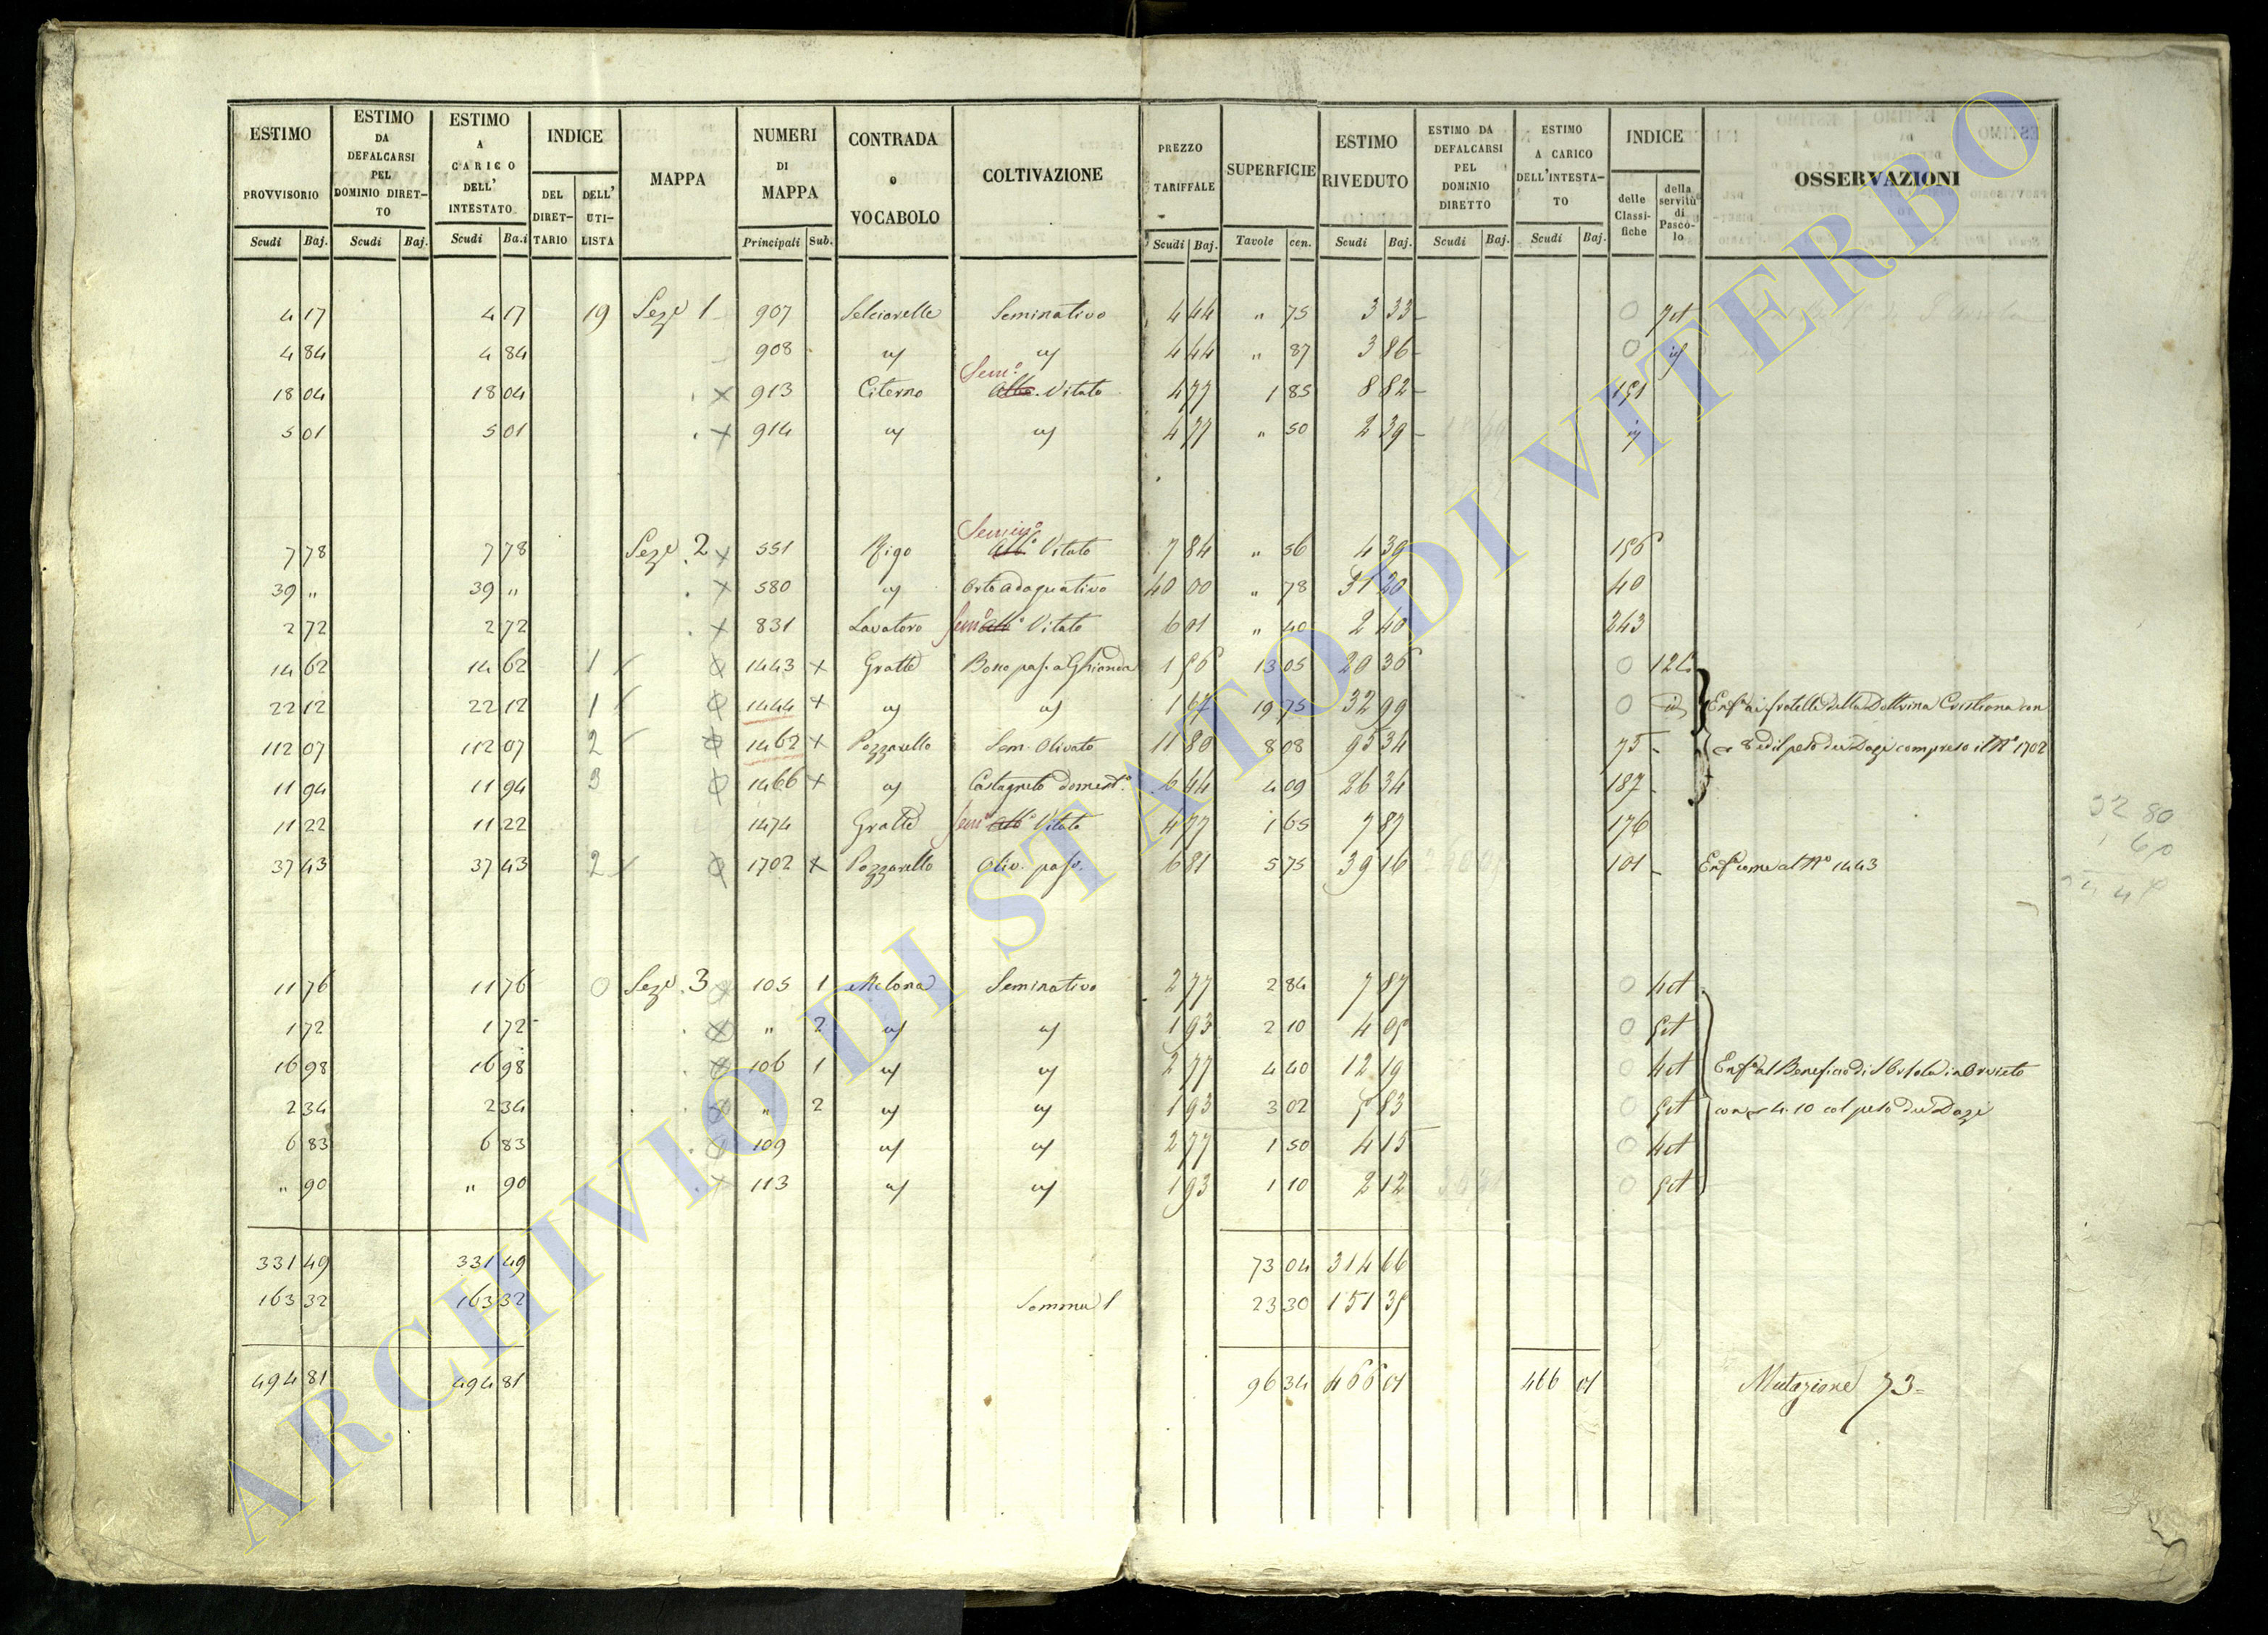 ESTIMO PROVVISORIO Scudi Baj.
ESTIMO DA DEFALCARSI PEL DOMINIO DIRETTO Scudi Baj.
ESTIMO A CARICO DELL' INTESTATO Scudi Ba.i
INDICE DEL DIRETTARIO DELL' UTILISTA
MAPPA
NUMERI DI MAPPA Principali Sub.
CONTRADA o VOCABOLO
COLTIVAZIONE
PREZZO TARIFFALE Scudi Baj.
SUPERFICIE Tavole cen.
ESTIMO RIVEDUTO Scudi Baj.
ESTIMO DA DEFALCARSI PEL DOMINIO DIRETTO Scudi Baj.
ESTIMO A CARICO DELL'INTESTATO Scudi Baj.
INDICE delle Classifiche della servitù di Pascolo
OSSERVAZIONI
4 17 4 17 19 Seze 1 907 Selciarelle Seminativo 4 44 " 75 3 33 0 7et
4 84 4 84 908 id id 4 44 " 87 3 86 0 id
18 04 18 04 x 913 Citerno Sem.o Alb. Vitato 4 77 1 85 8 82 151
5 01 5 01 x 914 id id 4 77 " 50 2 39 id
7 78 7 78 Seze. 2 x 551 Rigo Semin.o Alb.o Vitato 7 84 " 56 4 39 156
39 " 39 " x 580 id Orto adaquativo 40 00 " 78 31 20 40
2 72 2 72 x 831 Lavatoro Sem.o Alb.o Vitato 6 01 " 40 2 40 243
14 62 14 62 1 1443 x Gratte Bosco pas. a Ghianda 1 56 13 05 20 36 0 12
22 12 22 12 1 1444 x id id 1 67 19 75 32 99 0 id Enf.a ai fratelli della Dottrina Cristiana con
112 07 112 07 2 1462 x Pozzarello Sem. Olivato 11 80 8 08 95 34 75 8 ed il peso dei Dazi compreso il N.o 1702
11 94 11 94 3 1466 x id Castagneto domest.o 6 44 4 09 26 34 187
11 22 11 22 1474 Gratte Sem.o Alb.o Vitato 4 77 1 65 7 87 176
37 43 37 43 2 1702 x Pozzarello Oliv. pas. 6 81 5 75 39 16 101 Enf. come al N.o 1443
11 76 11 76 0 Seze. 3 105 1 Melona Seminativo 2 77 2 84 7 87 0 4et
1 72 1 72 " 2 id id 1 93 2 10 4 05 0 5et
16 98 16 98 106 1 id id 2 77 4 40 12 19 0 4et Enf.a al Beneficio di S Orsola in Orvieto
2 34 2 34 " 2 id id 1 93 3 02 5 83 0 5et con 4.10 col peso dei Dazi
6 83 6 83 109 id id 2 77 1 50 4 15 0 4et
" 90 " 90 113 id id 1 93 1 10 2 12 0 5et
331 49 331 49 73 04 314 66
163 32 163 32 Somma 1 23 30 151 35
494 81 494 81 96 34 466 01 466 01 Mutazione 73
ARCHIVIO DI STATO DI VITERBO